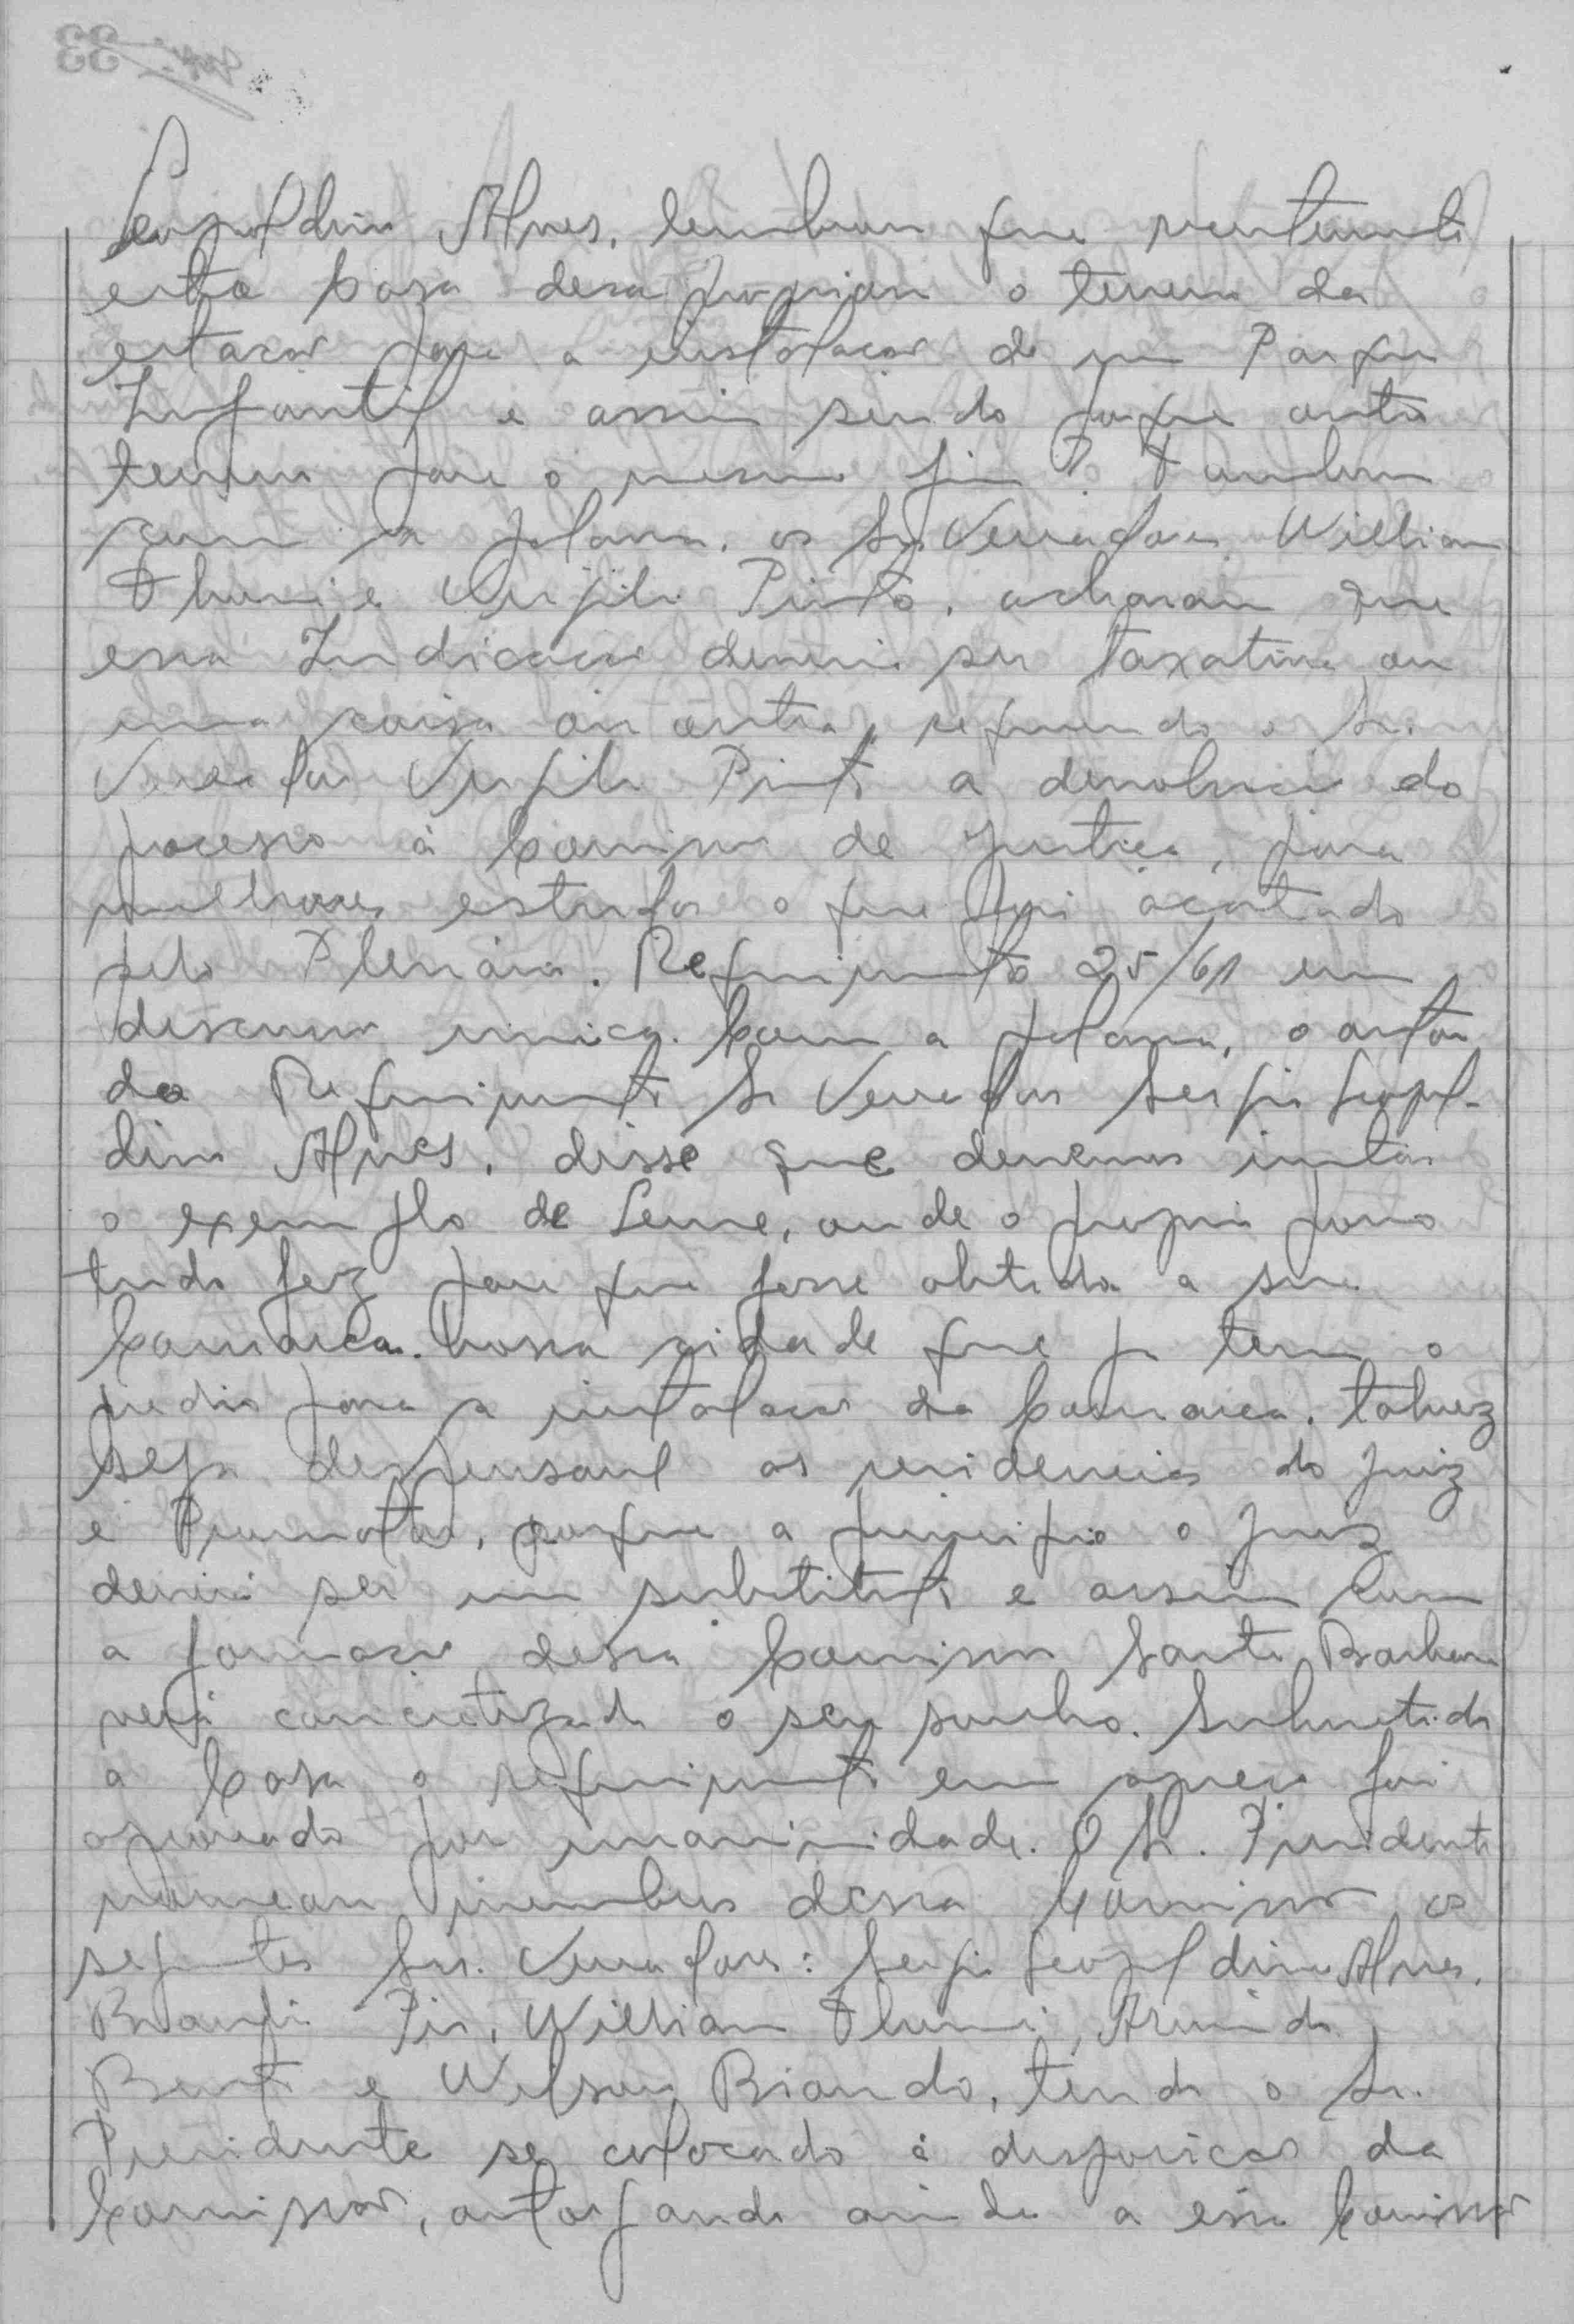 Leopoldino Alves, lembrou que recentemente
esta Casa desapropriou o terreno da
estacao para a instalacao de um Parque
Infantil e assim sendo porque outro
terreno para o mesmo fim? Tambem
com a palavra, os Srs Vereadores William
e Virgilio Pinto, acharam que
essa Indicacao deveria ser taxativa ou
uma coisa ou outra, requerendo o Sr.
Vereador Virgilio Pinto a devolucao do
processo à Comissao de Justica, para
melhores estudos o que foi acatado
pelo Plenário. Requerimento 25/61 em
discussao unica. Com a palavra, o autor
do Requerimento Sr Vereador Sergio Leopol-
dino Alves, disse que devemos imitar
o exemplo de Leme, onde o proprio povo
tudo fez para que fosse obtida a sua
Comarca. Nossa cidade que ja tem o
predio para a instalacao da Comarca, talvez
seja dispensavel as residencias do Juiz
e Promotor, porque a principio o Juiz
deverá ser um substituto e assim com
a formacao dessa Comissao Santa Barbara
verá concretizado o seu sonho. Submetido
a Casa o requerimento em apreco foi
aprovado por unanimidade. O Sr. Presidente
nomeou membros dessa Comissao os
seguintes Srs. Vereadores: Sergio Leopoldino Alves,
Pires, William Armindo
Bento e Wilson, tendo o Sr.
Presidente se colocado à disposicao da
Comissao, outorgando ainda a essa Comissao